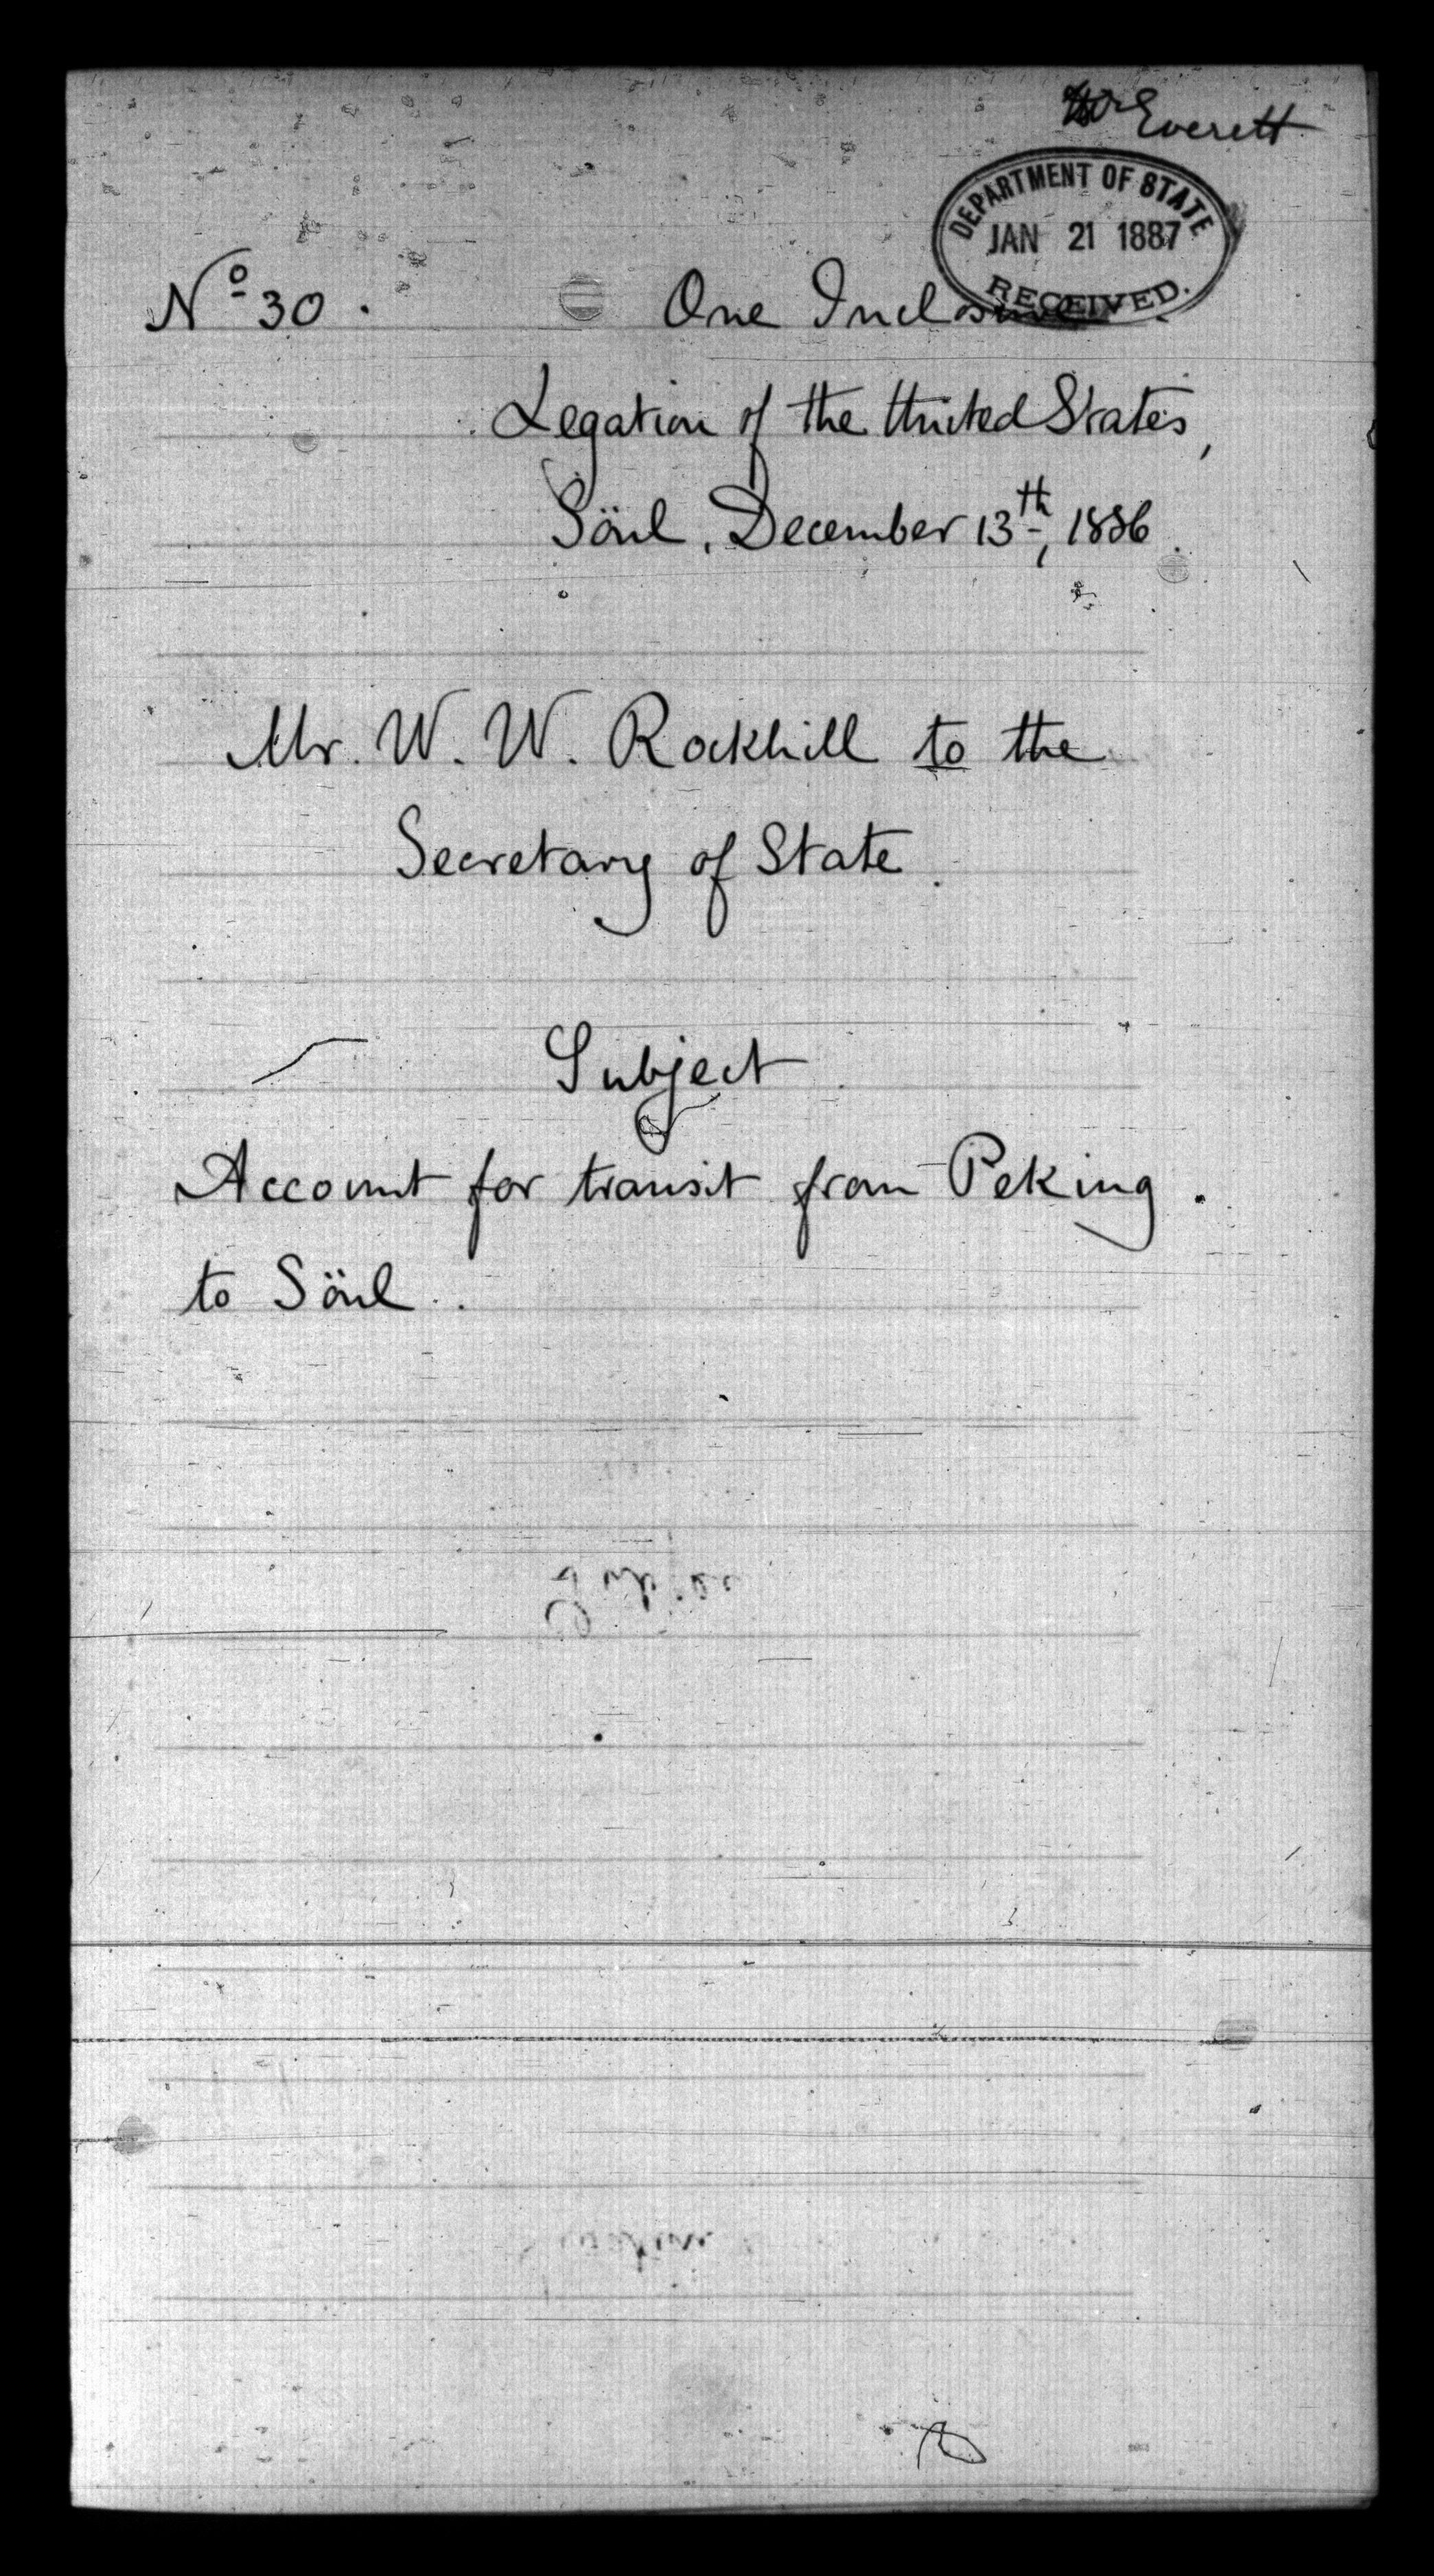 Mr Everett
DEPARTMENT OF STATE
JAN 21 1887
RECEIVED.
Nº 30.
One Inclosure.
Legation of the United States,
Söul, December 13th, 1886.
Mr. W. W. Rockhill to the
Secretary of State.
Subject
Account for transit from Peking
to Söul.